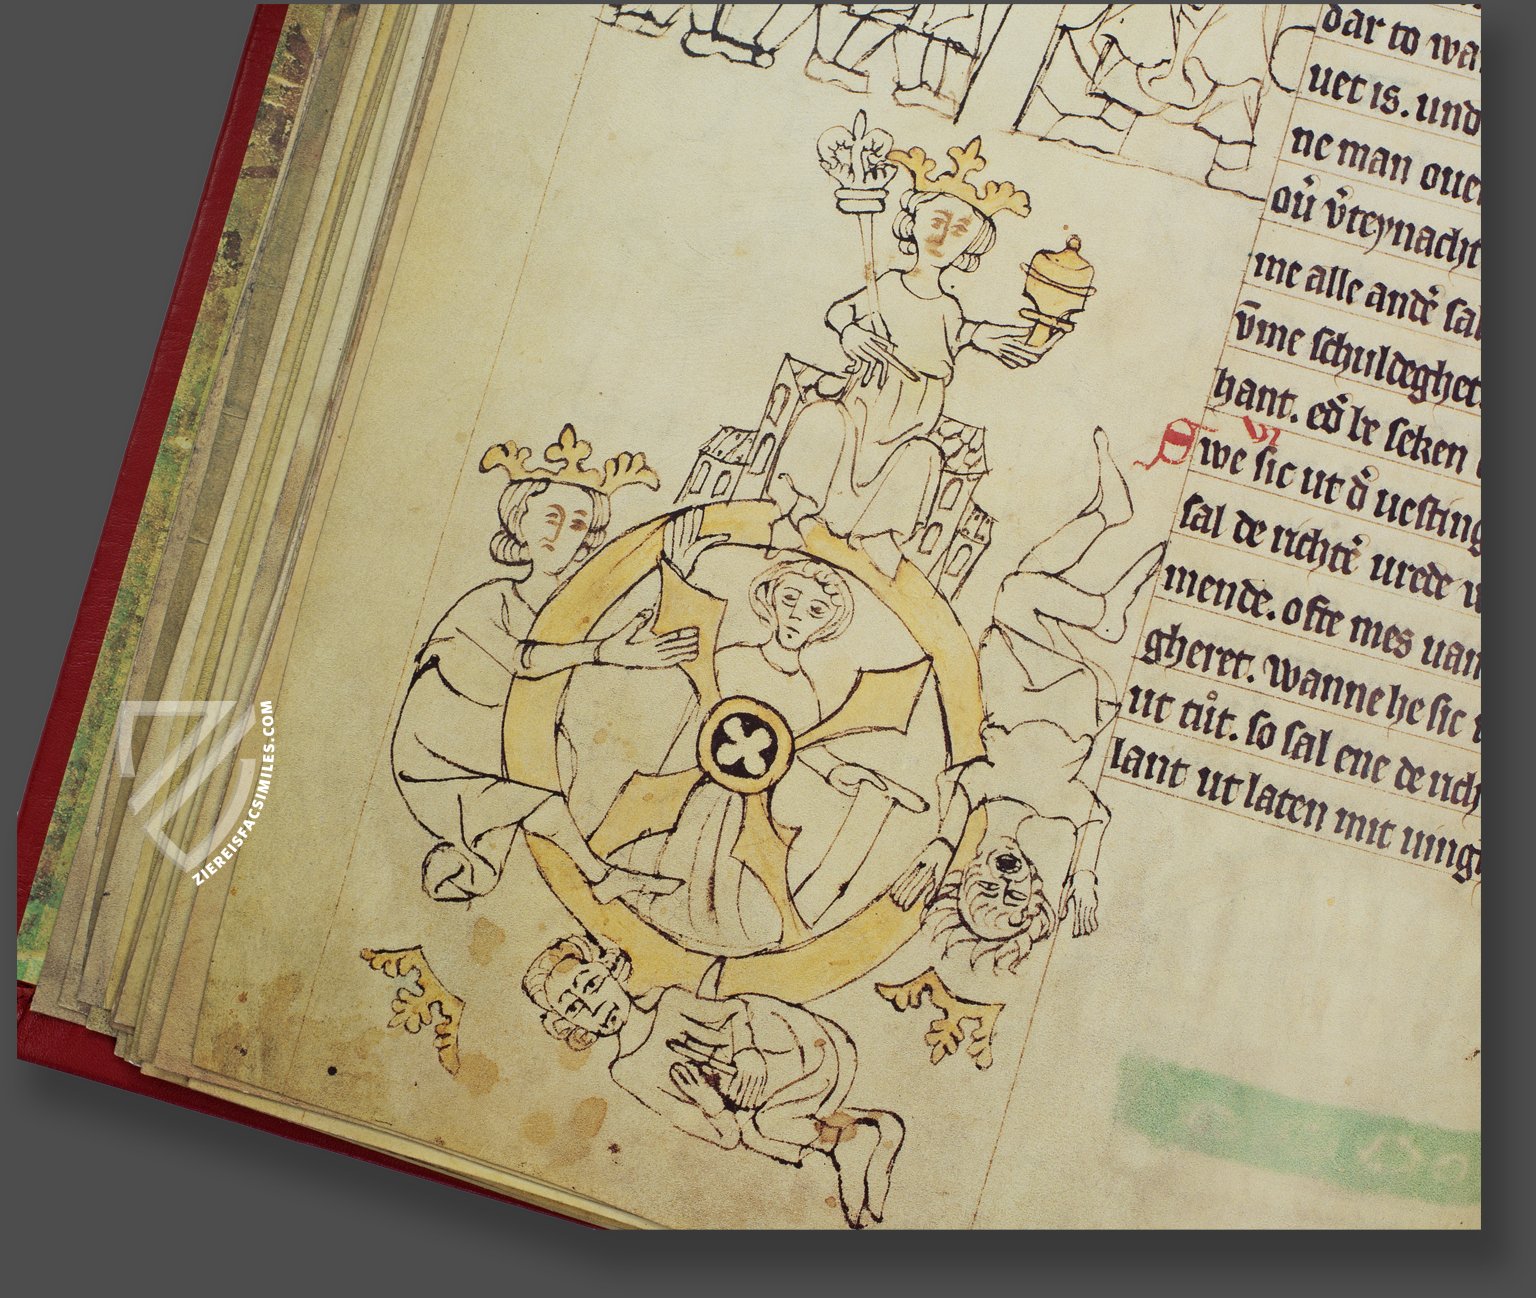 dar to wa
uet is. und
ne man ouer
oū v̄teynacht
me alle andē sal
v̄me schuldeghet
hant. edˀ he seken
VI
Swe sic ut dˀ uesting
sal de richtē urede u
mende. ofte mes uan
gheret. wanne he sic
ut tůt. so sal ene de rich
lant ut laten mit ming
ZIEREISFACSIMILES.COM